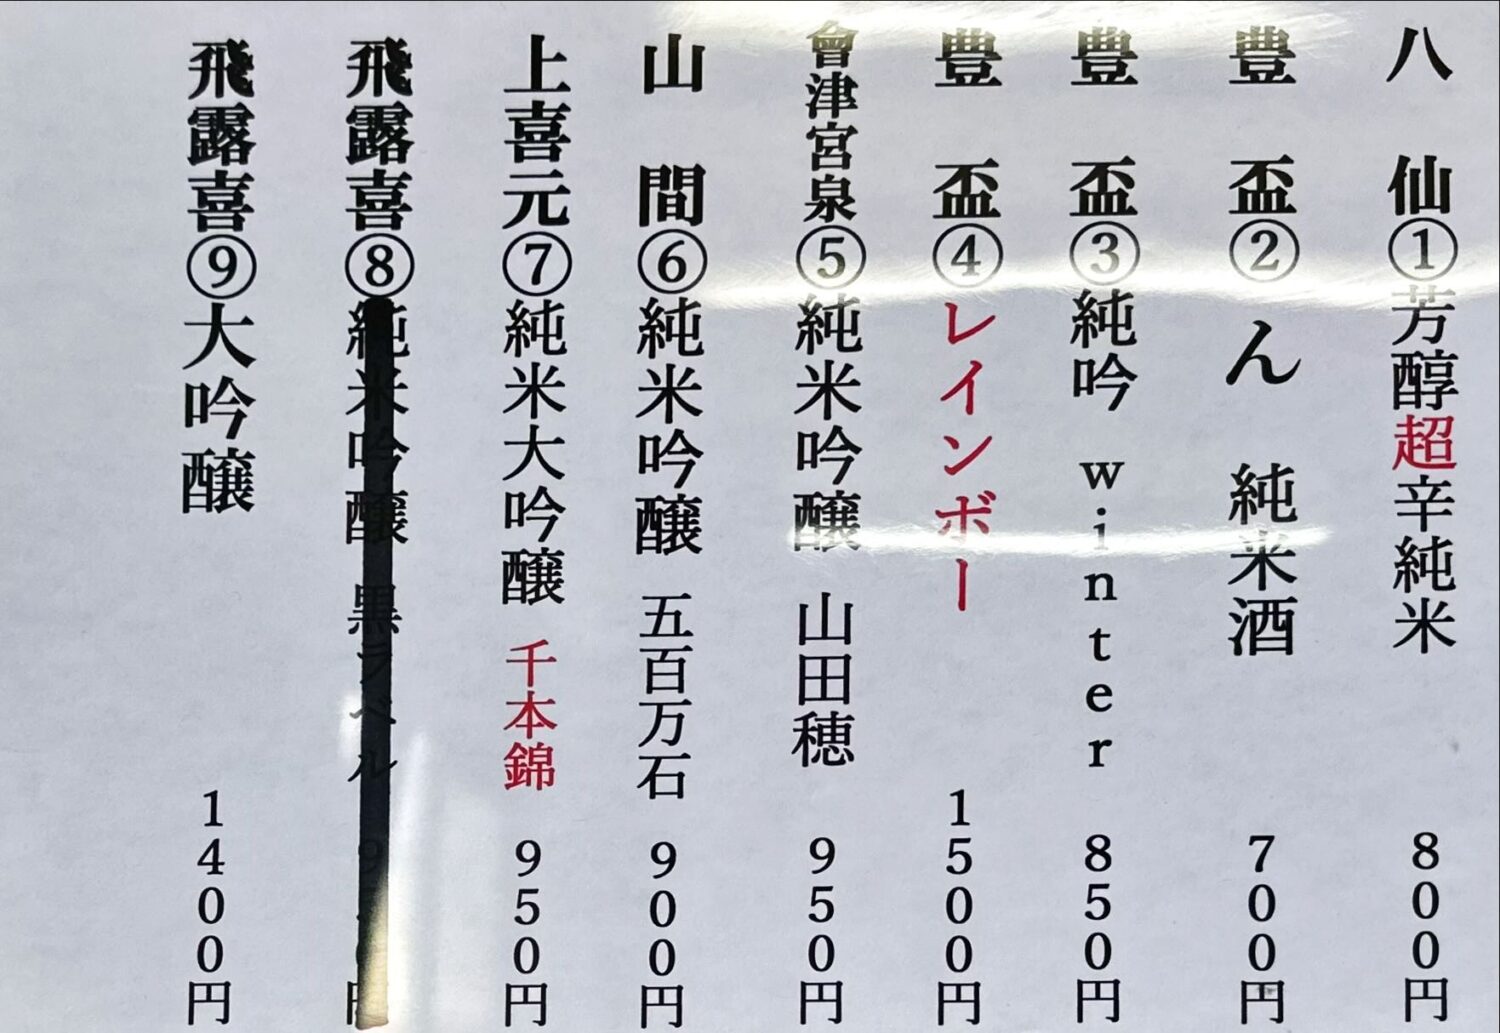 八仙①芳醇超辛純米 800円
豊盃②ん 純米酒 700円
豊盃③純吟 winter 850円
豊盃④レインボー 1500円
會津宮泉⑤純米吟醸 山田穂 950円
山間⑥純米吟醸 五百万石 900円
上喜元⑦純米大吟醸 千本錦 950円
飛露喜⑧純米吟醸 黒ラベル 円
飛露喜⑨大吟醸 1400円